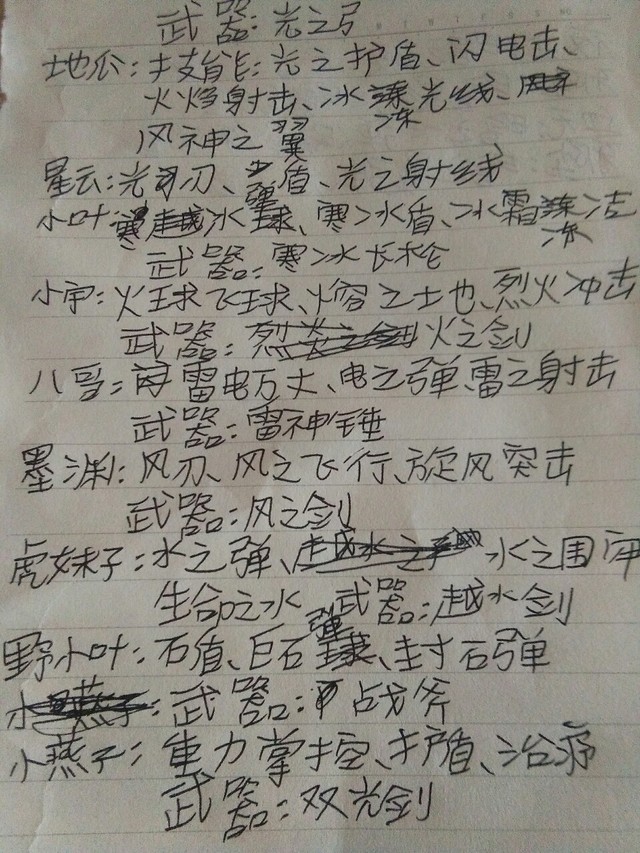 武器:光之弓
地瓜:技能:光之护盾、闪电击、
火焰射击、冰冻光线、
风神之翼
星云:光刃、盾、光之射线
小叶:寒冰球、寒冰盾、冰霜冻洁
武器:寒冰长枪
小宇:火球飞球、火容之土也、烈火冲击
武器:火之剑
八哥:雷电万丈、电之弹、雷之射击
武器:雷神锤
墨渊:风刃、风之飞行、旋风突击
武器:风之剑
虎妹子:水之弹、水之围
生命之水 武器:越水剑
野小叶:石盾、巨石弹、封石弹
武器:战斧
小燕子:重力掌控、护盾、治疗
武器:双光剑